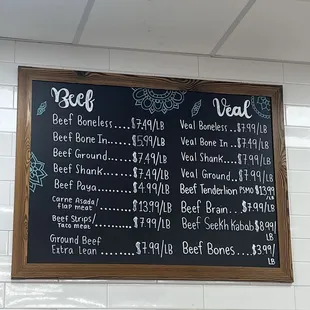 Beef
Beef Boneless.....$7.49/LB
Beef Bone In......$5.99/LB
Beef Ground.......$7.49/LB
Beef Shank........$7.49/LB
Beef Paya.........$4.99/LB
Carne Asada/
flap meat.........$13.99/LB
Beef Strips/
Taco meat.........$7.99/LB
Ground Beef
Extra Lean........$7.99/LB
Veal
Veal Boneless...$7.99/LB
Veal Bone In....$7.49/LB
Veal Shank.....$7.99/LB
Veal Ground....$7.99/LB
Beef Tenderloin PSMO $13.99
/LB
Beef Brain...$7.99/LB
Beef Seekh Kabab $8.99
/LB
Beef Bones...$3.99/
LB